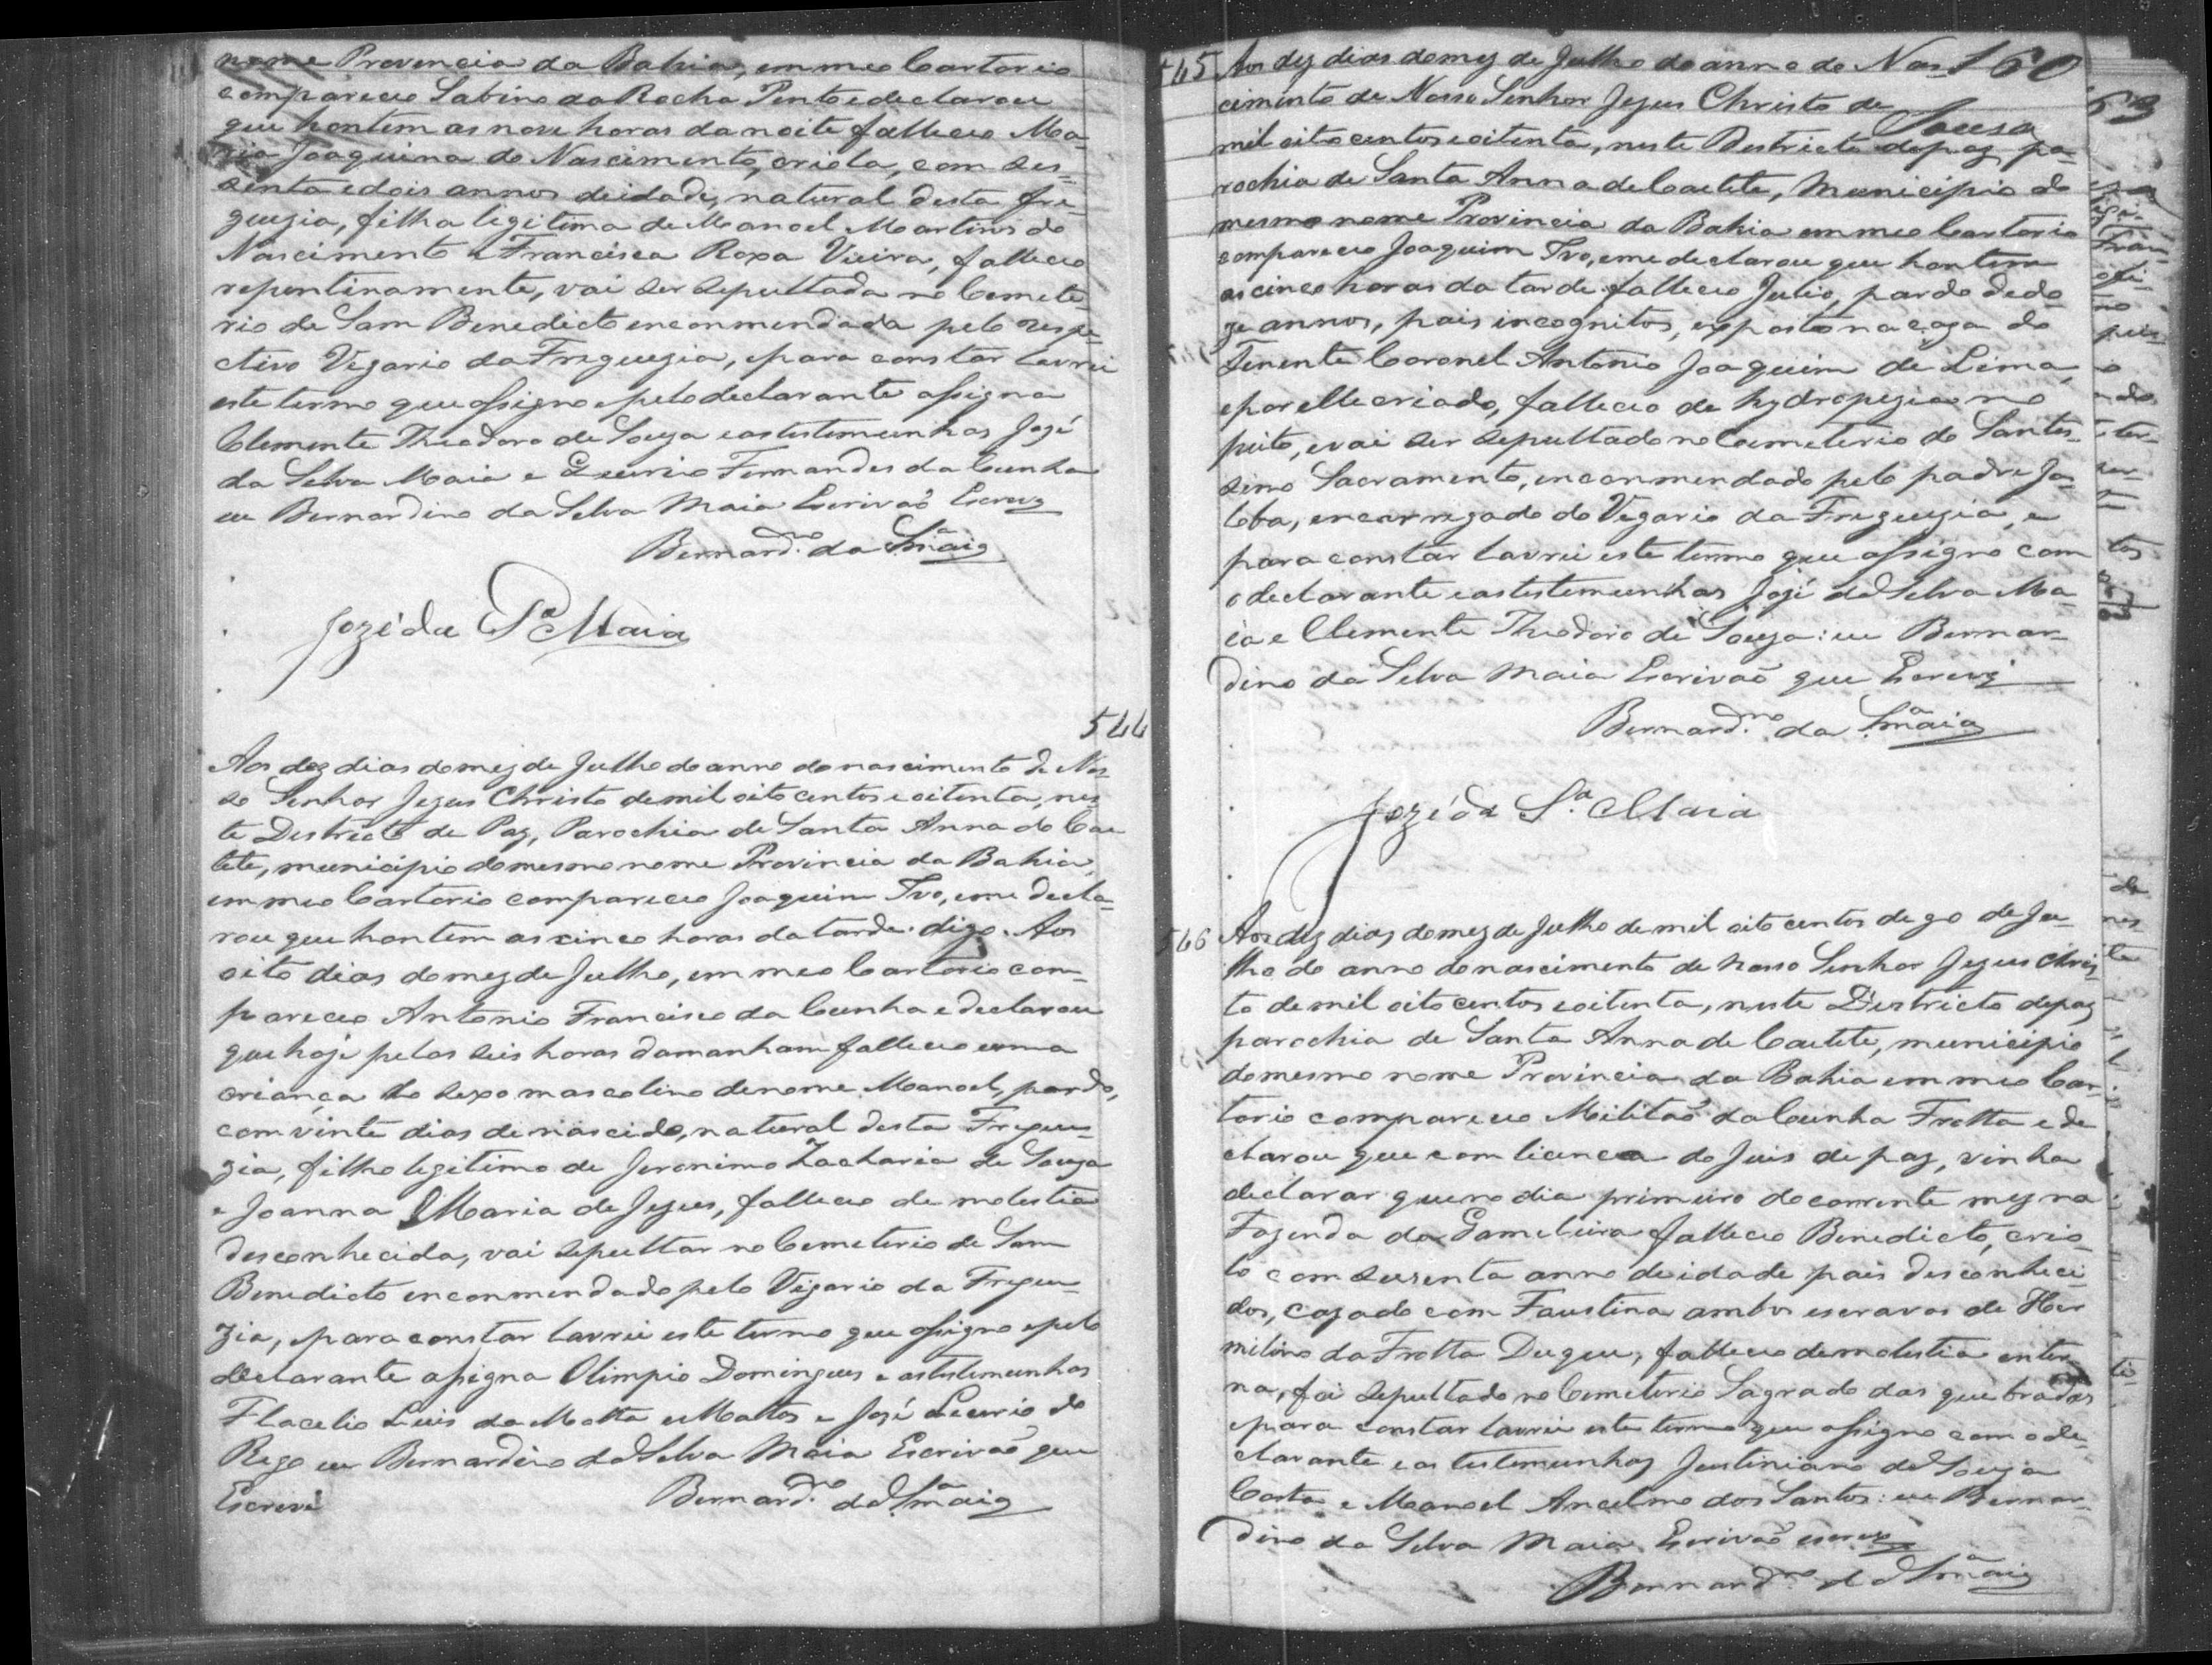 nome Provencia da Bahia, em meo Cartorio
compareceo Sabino da Rocha Pinto e declarou
que hontem as nove horas da noite falleceo Ma-
ria Joaquina do Nascimento, criola, com ses-
senta e dois annos de idade, natural desta fre-
guezia, filha legitima de Manoel Martins do
Nascimento e Francisca Roza Vieira, falleceo
repentinamente, vai ser sepultada no Cemete-
rio de Sam Benedicto enconmendada pelo respe-
ctivo Vigario da Freguezia, e para constar lavrei
este termo que assigno e pelo declarante assigna
Clemente Theodoro de Souza e as testemunhas José
da Silva Maia e Fernandes da Cunha
eu Bernardino da Silva Maia Escrivaõ Escrevy
Bernard.no da S.a Maia
Jozé da S.a Maia
544
Aos dez dias do mez de Julho do anno do nascimento de Nos-
so Senhor Jezus Christo de mil oito centos e oitenta, nes-
te Destricto de Paz, Parochia de Santa Anna do Cae-
tete, municipio do mesmo nome Provincia da Bahia,
em meo Cartorio compareceo Joaquim Ivo, e me decla-
rou que hontem as cinco horas da tarde. digo. Aos
oito dias do mez de Julho, em meo Cartorio com-
pareceo Antonio Francisco da Cunha e declarou
que hoje pelas seis horas da manham falleceo uma
criança do sexo mascolino de nome Manoel, pardo,
com vinte dias de nascido, natural desta Fregue-
zia, filho legitimo de Jeronimo Zacharia de Souza
e Joanna Maria de Jezus, falleceo de molestia
desconhecida, vai sepultar no Cemeterio de Sam
Benedicto enconmendado pelo Vigario da Fregue-
zia, e para constar lavrei este termo que assigno e pelo
declarante assigna Olimpio Domingues e as testemunhas
Luis da Motta e Mattos e José Leurio do
Rego eu Bernardino da Silva Maia Escrivaõ que
Escrevi Bernard.no da S.a Maia
545 Aos dez dias do mez de Julho do anno do Nas- 160
cimento de Nosso Senhor Jezus Christo de
Sousa
mil oito centos e oitenta, neste Destricto de paz pa-
rochia de Santa Anna de Caetete, Municipio do
mesmo nome Provincia da Bahia em meo Cartorio
compareceo Joaquim Ivo, e me declarou que hontem
as cinco horas da tarde falleceo Julio, pardo de do-
ze annos, pais incognitos, exposto na caza do
Tenente Coronel Antonio Joaquim de Lima,
e por elle criado, falleceo de hydropezia no
peito, e vai ser sepultado no Cemeterio do Santis-
simo Sacramento, enconmendado pelo padre Ja-
toba, encarregado do Vigario da Freguezia, e
para constar lavrei este termo que assigno com
o declarante e as testemunhas José da Silva Ma-
ia e Clemente Theodoro de Souza: eu Bernar-
dino da Silva Maia Escrivaõ que Escrevy
Bernard.no da S.a Maia
Jozé da S.a Maia
546 Aos dez dias do mez de Julho de mil oito centos digo de Ju-
lho do anno do nascimento de nosso Senhor Jezus Chris-
to de mil oito centos e oitenta, neste Districto de paz
parochia de Santa Anna de Caetete, municipio
do mesmo nome Provincia da Bahia em meo Car-
torio compareceo Militaõ da Cunha Frotta e de-
clarou que com licenca do Juis de paz, vinha
declarar que no dia primeiro do corrente mez na
Fazenda da Gameleira falleceo Benedicto, crio-
lo com secenta anno de idade pais desconheci-
dos, cazado com Faustina ambos escravos de Her
milino da Frotta Duque, falleceo de molestia enter-
na, foi sepultado no Cemeterio Sagrado das quebradas
e para constar lavrei este termo que assigno com o de-
clarante e as testemunhas Justiniano de Souza
Costa e Manoel Ancelmo dos Santos: eu Bernar-
dino da Silva Maia Escrivaõ escrevy
Bernard.no da S.a Maia